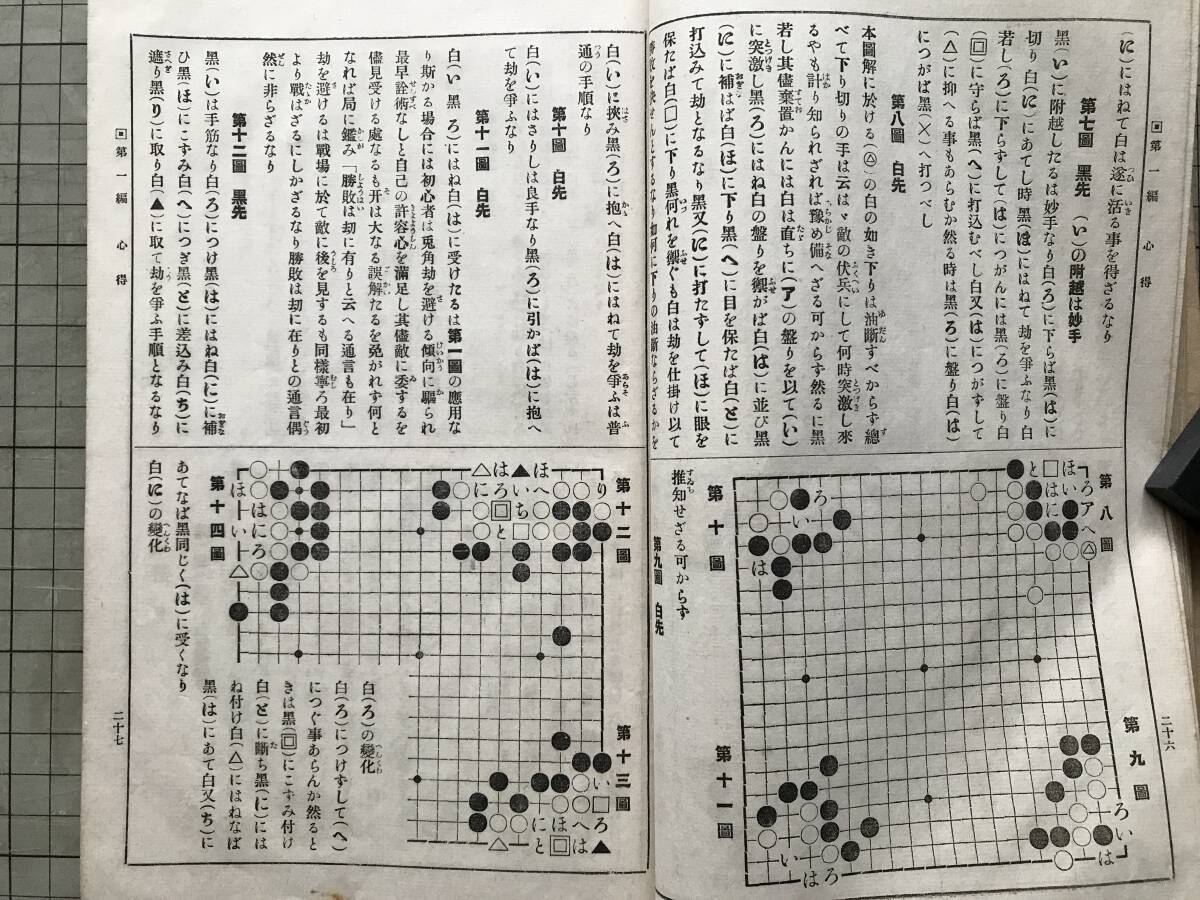 第一編 心得
(に)にはねて白は遂に活る事を得ざるなり
第七圖 黑先 (い)の附越は妙手
黑(い)に附越したるは妙手なり白(ろ)に下らば黑(は)に
切り白(に)にあてし時黑(ほ)にはねて劫を爭ふなり白
若し(ろ)に下らずして(は)につがんには黑(ろ)に盤り白
(回)に守らば黑(へ)に打込むべし白又(は)につがずして
(△)に抑へる事もあらむか然る時は黑(ろ)に盤り白(は)
につがば黑(×)へ打つべし
第八圖 白先
本圖解に於ける(△)の白の如き下りは油斷すべからず總
べて下り切りの手は云はゞ敵の伏兵にして何時突激し來
るやも計り知られざれば豫め備へざる可からず然るに黑
若し其儘棄置かんには白は直ちに(ア)の盤りを以て(い)
に突激し黑(ろ)にはね白の盤りを禦がば白(は)に並び黑
(に)に補はば白(ほ)に下り黑(へ)に目を保たば白(と)に
打込みて劫となるなり黑又(に)に打たずして(ほ)に眼を
保たば白(□)に下り黑何れを禦ぐも白は劫を仕掛け以て
推知せざる可からず
第九圖 白先
第八圖
第九圖
第十圖
第十一圖
二十六
白(い)に挾み黑(ろ)に抱へ白(は)にはねて劫を爭ふは普
通の手順なり
第十圖 白先
白(い)にはさりしは良手なり黑(ろ)に引かば(は)に抱へ
て劫を爭ふなり
第十一圖 白先
白(い黑ろ)にはね白(は)に受けたるは第一圖の應用な
り斯かる場合には初心者は兎角劫を避ける傾向に驅られ
最早詮術なしと自己の許容心を滿足し其儘敵に委するを
儘見受ける處なるも开は大なる誤解たるを免がれず何と
なれば局に鑑み「勝敗は刧に有りと云へる通言も在り」
劫を避けるは戰場に於て敵に後を見するも同樣寧ろ最初
より戰はざるにしかざるなり勝敗は刧に在りとの通言偶
然に非らざるなり
第十二圖 黑先
黑(い)は手筋なり白(ろ)につけ黑(は)にはね白(に)に補
ひ黑(ほ)にこすみ白(へ)につぎ黑(と)に差込み白(ち)に
遮り黑(り)に取り白(▲)に取て劫を爭ふ手順となるなり
第一編 心得
第十二圖
第十三圖
第十四圖
あてなば黑同じく(は)に受くなり
白(に)の變化
白(ろ)の變化
白(ろ)につけずして(へ)
につぐ事あらんか然ると
きは黑(回)にこすみ付け
白(と)に斷ち黑(に)には
ね付け白(△)にはねなば
黑(は)にあて白又(ち)に
二十七